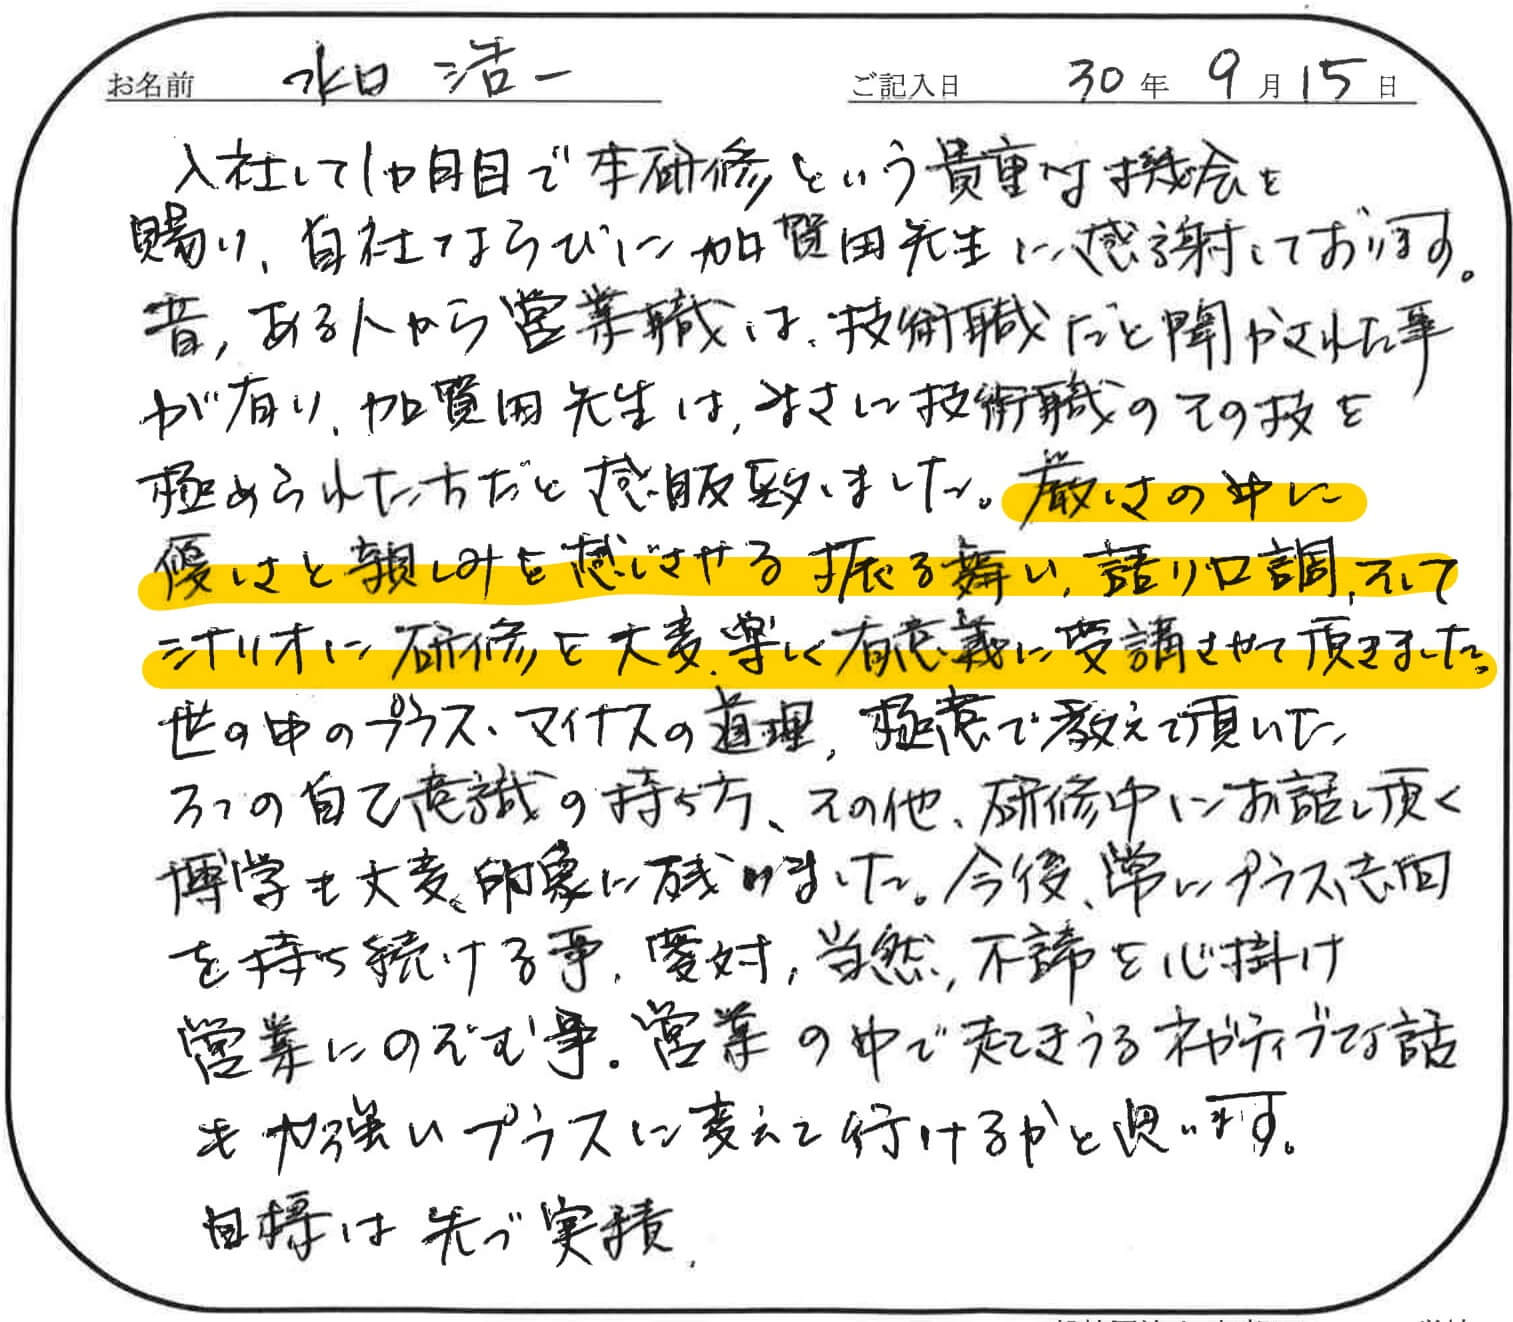 お名前 水口 浩一 ご記入日 30年 9月15日
入社して1ヵ月目で本研修という貴重な機会を
賜り、自社ならびに加賀田先生に感謝しております。
昔、ある人から営業職は、技術職だと聞かされた事
が有り、加賀田先生は、まさに技術職のその技を
極められた方だと感服致しました。厳しさの中に
優しさと親しみを感じさせる振る舞い、語り口調、そして
シナリオに研修を大変楽しく有意義に受講させて頂きました。
世の中のプラス、マイナスの道理、極意で教えて頂いた
3つの自己意識の持ち方、その他、研修中にお話し頂く
博学も大変印象に残りました。今後、常にプラス志向
を持ち続ける事、愛対、当然、不諦を心掛け
営業にのぞむ事。営業の中で起きうるネガティブな話
も力強いプラスに変えて行けるかと思います。
目標は先づ実績、